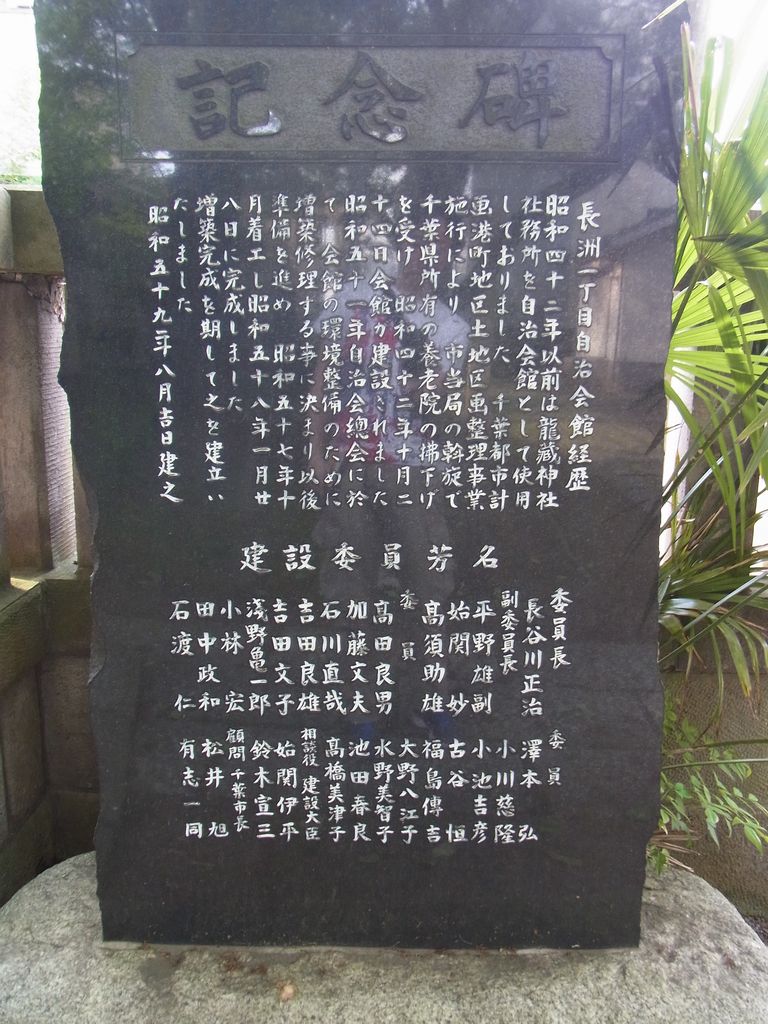 記念碑
長洲一丁目自治会館経歴
昭和四十二年以前は龍蔵神社
社務所を自治会館として使用
しておりました 千葉都市計
画港町地区土地区画整理事業
施行により 市当局の斡旋で
千葉県所有の養老院の拂下げ
を受け 昭和四十二年十月二
十四日会館が建設されました
昭和五十一年自治会總会に於
て 会館の環境整備のために
増築修理する事に決まり以後
準備を進め 昭和五十七年十
月着工し昭和五十八年一月廿
八日に完成しました
増築完成を期して之を建立い
たしました
昭和五十九年八月吉日建之
建設委員芳名
委員長
長谷川正治
副委員長
平野雄副
始関 妙
髙須助雄
委員
髙田良男
加藤文夫
石川直哉
吉田良雄
吉田文子
淺野亀一郎
小林 宏
田中政和
石渡 仁
委員
澤本 弘
小川慈隆
小池吉彦
古谷 恒
福島傳吉
大野八江子
水野美智子
池田春良
髙橋美津子
相談役 建設大臣
始関伊平
鈴木宣三
顧問 千葉市長
松井 旭
有志一同